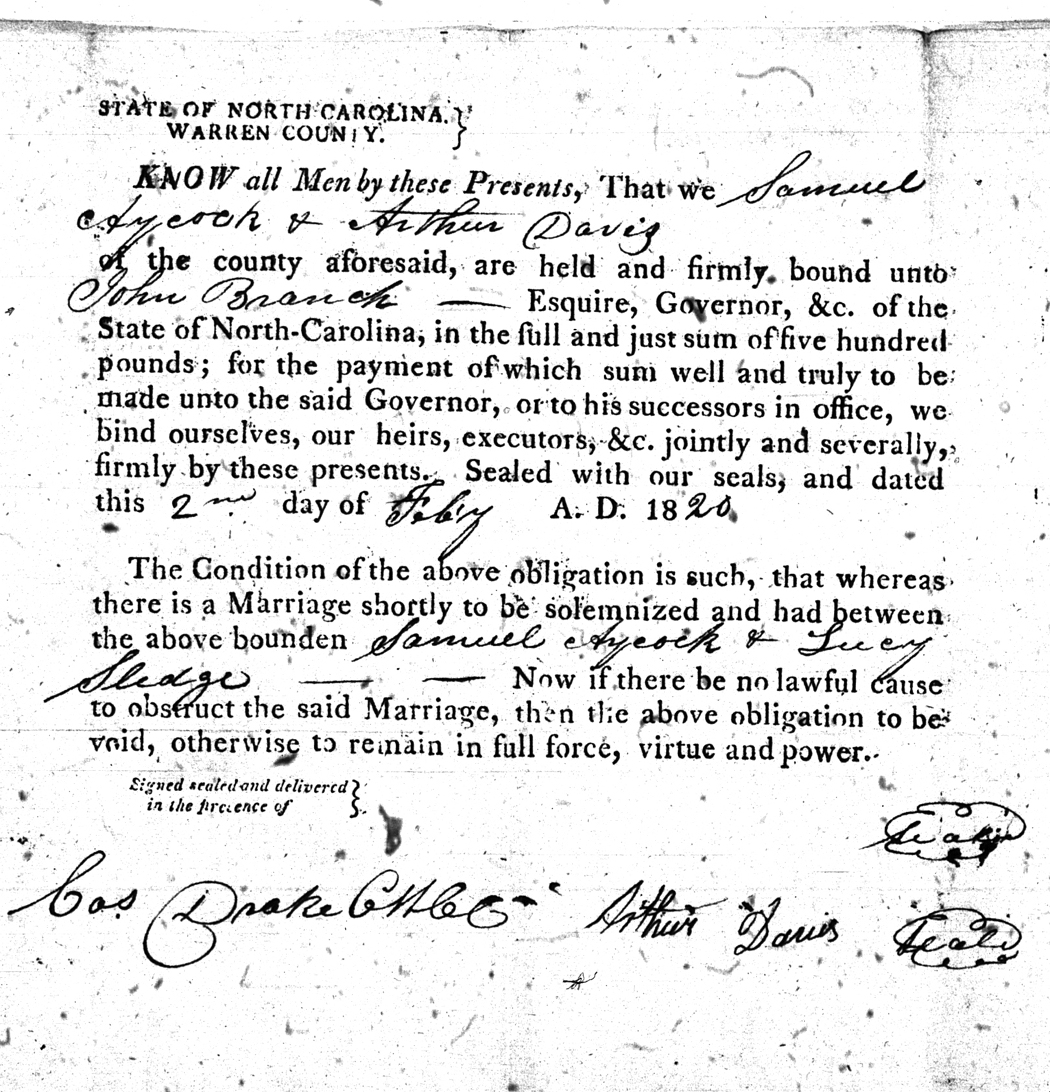 STATE OF NORTH CAROLINA.
WARREN COUNTY.
KNOW all Men by these Presents, That we Samuel
Aycock & Arthur Davis
of the county aforesaid, are held and firmly bound unto
John Branch — Esquire, Governor, &c. of the
State of North-Carolina, in the full and just sum of five hundred
pounds; for the payment of which sum well and truly to be
made unto the said Governor, or to his successors in office, we
bind ourselves, our heirs, executors, &c. jointly and severally,
firmly by these presents. Sealed with our seals, and dated
this 2nd day of Feby A. D. 1820
The Condition of the above obligation is such, that whereas
there is a Marriage shortly to be solemnized and had between
the above bounden Samuel Aycock & Lucy
Sledge — — Now if there be no lawful cause
to obstruct the said Marriage, then the above obligation to be
void, otherwise to remain in full force, virtue and power.
Signed sealed and delivered
in the presence of
Seal
Cas Drake Arthur Davis Seal